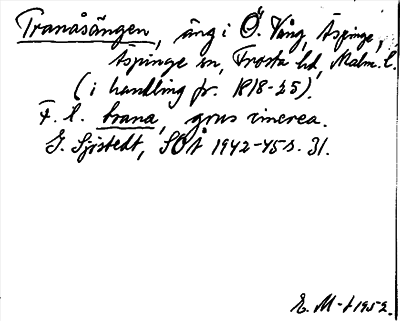 Tranåsängen, äng i Ö. Vång, Äspinge,
Äspinge sn, Frosta hd, Malm. l.
(i handling fr. 1818-25).
F. l. trana, grus cinerea.
G. Sjöstedt, SOÅ 1942-45 s. 31.
E. M-t 1952.